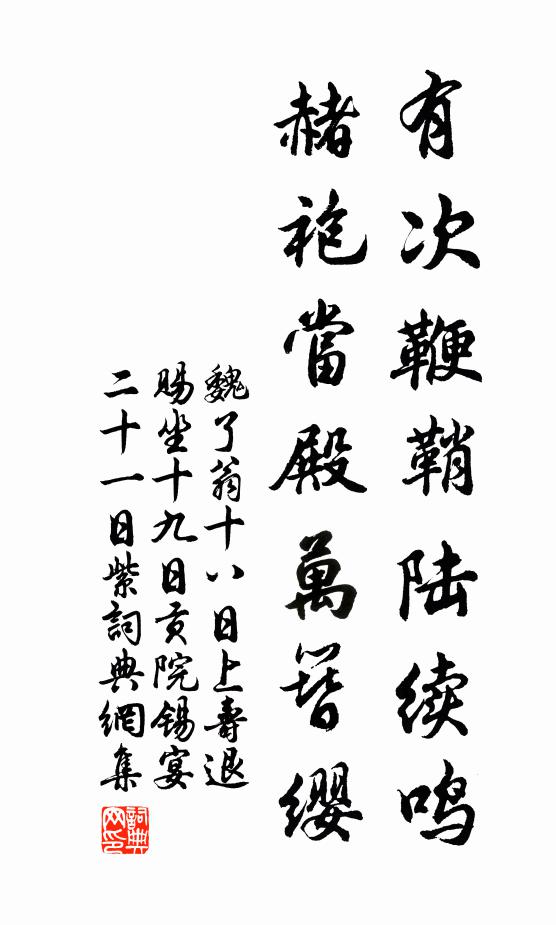 有次鞭鞘陆续鸣
赭袍當殿萬簪缨
魏了翁十八日上壽退
賜坐十九日貢院锡宴
二十一日紫詞典網集
詞典网印